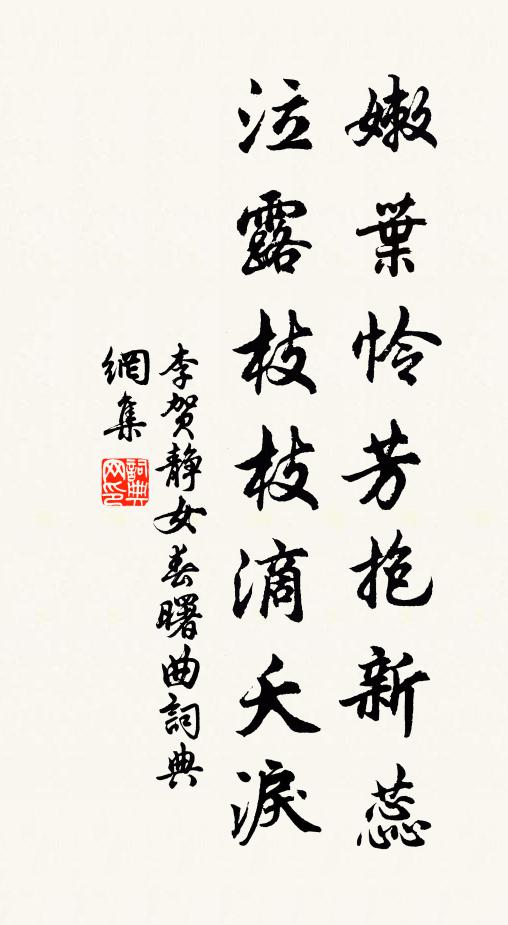 嫩葉怜芳抱新蕊
泣露枝枝滴夭淚
李贺静女春曙曲詞典
網集
詞典
网印